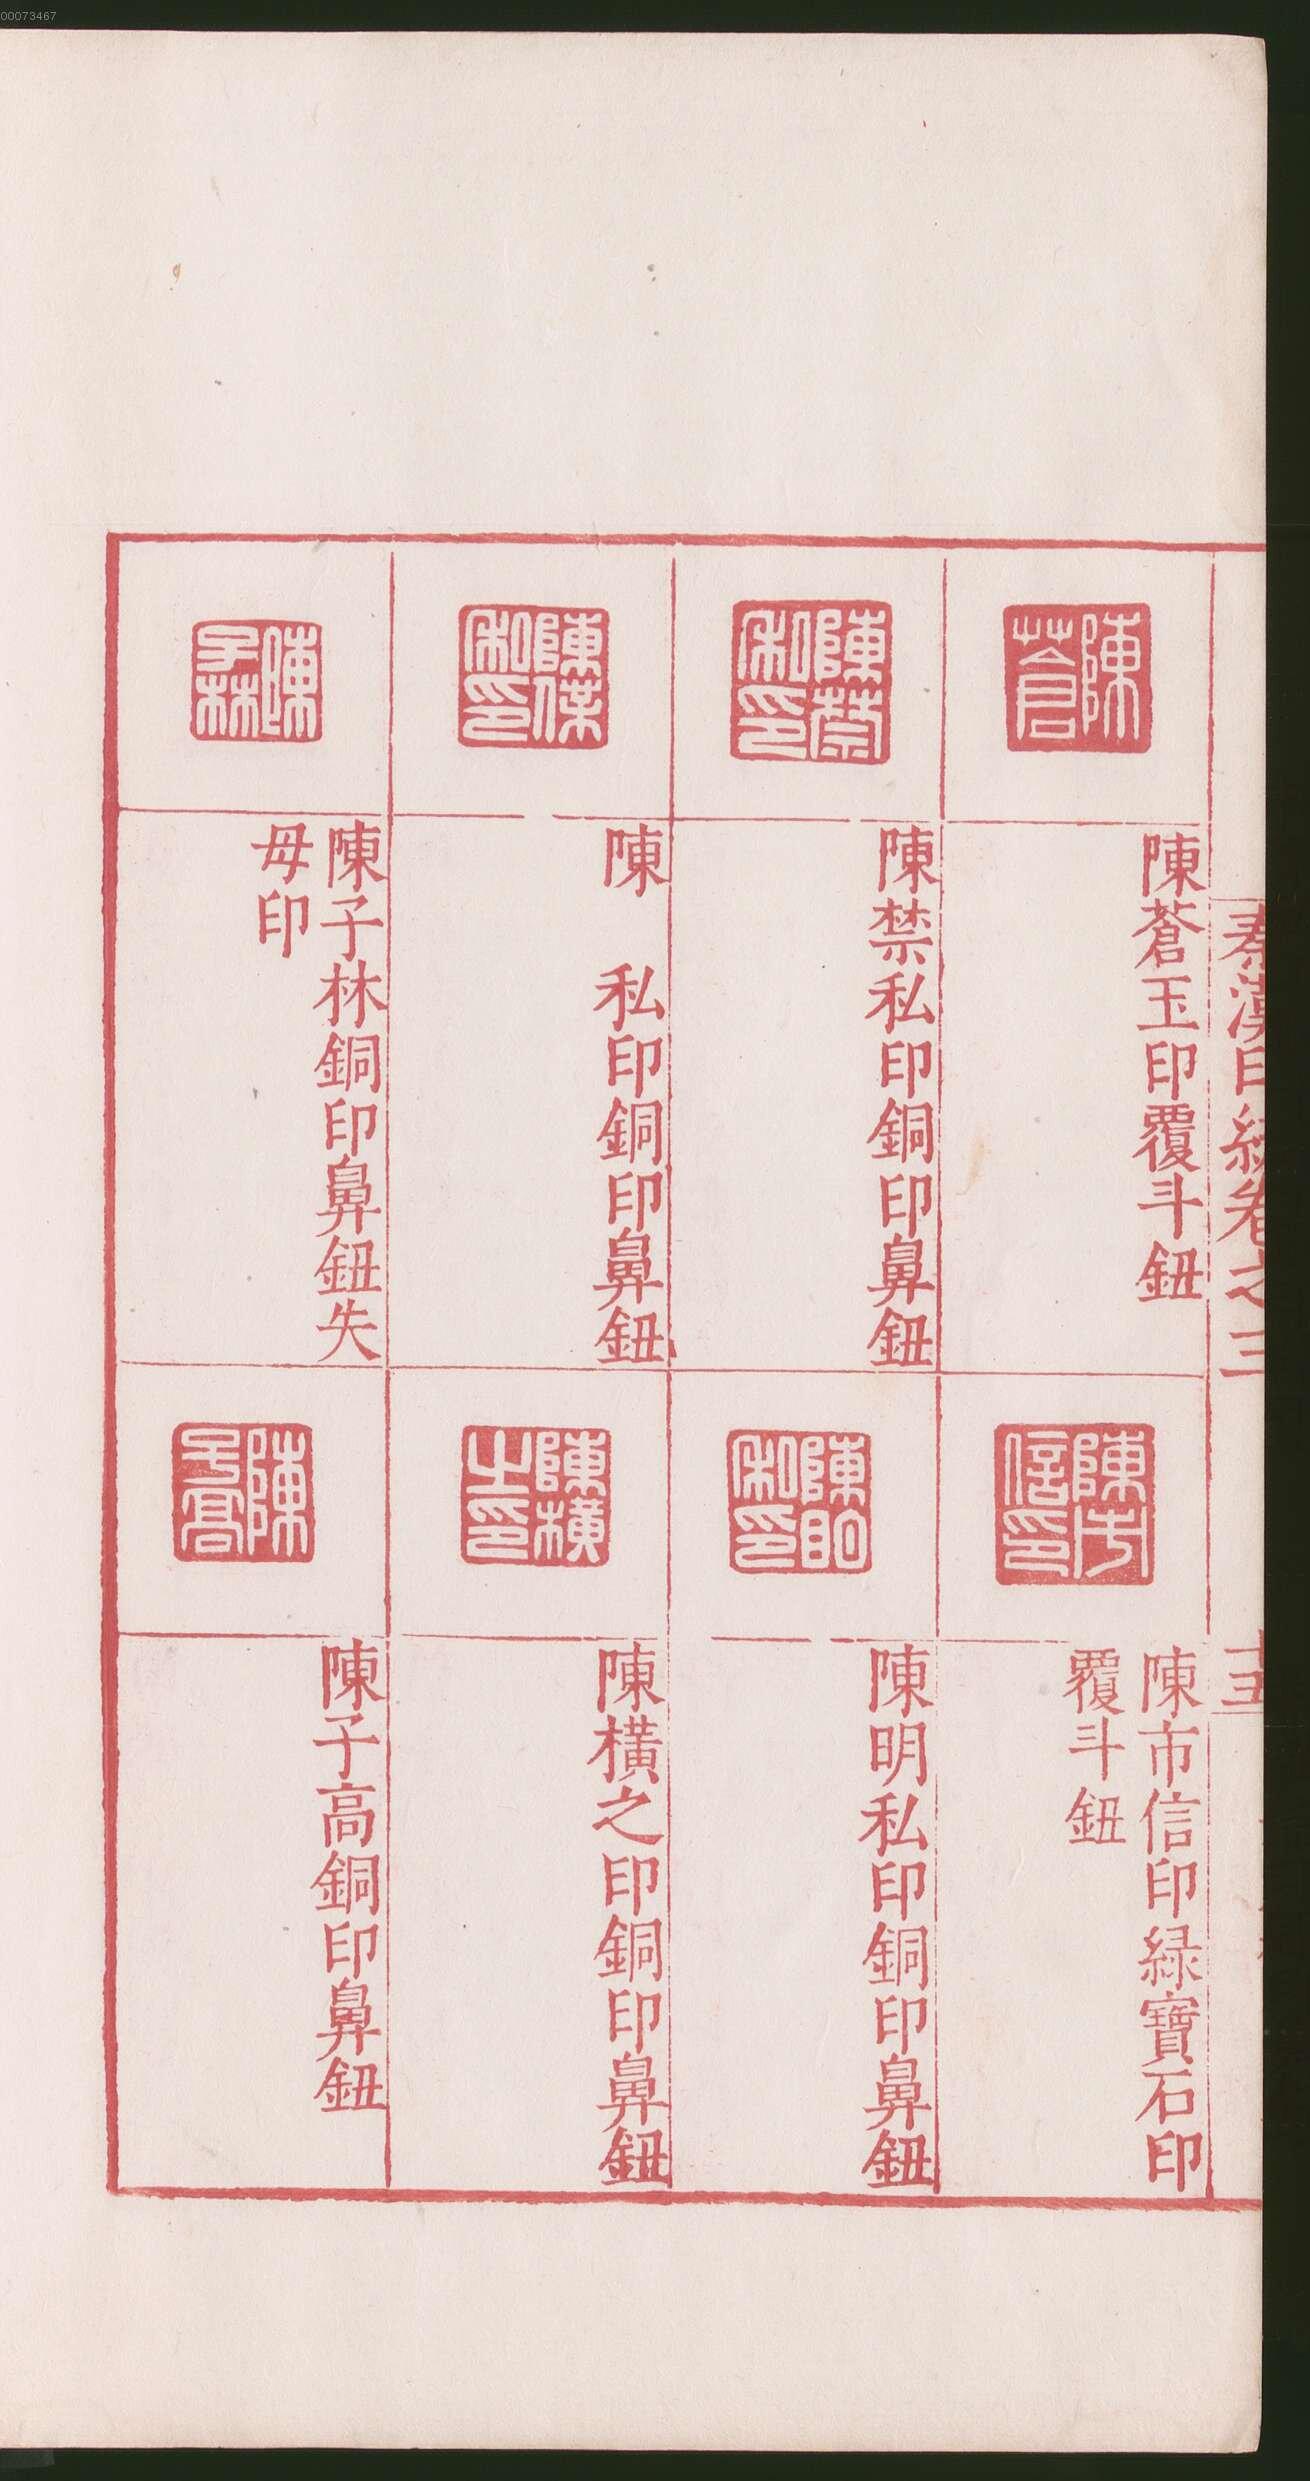 00073467
秦漢印統卷之三
十五
陳蒼
陳蒼玉印覆斗鈕
陳禁私印
陳禁私印銅印鼻鈕
陳 私印銅印鼻鈕
陳子林
陳子林銅印鼻鈕失
母印
陳市信印
陳市信印印綠寶石印
覆斗鈕
陳明私印銅印鼻鈕
陳橫之印
陳橫之印銅印鼻鈕
陳子高
陳子高銅印鼻鈕